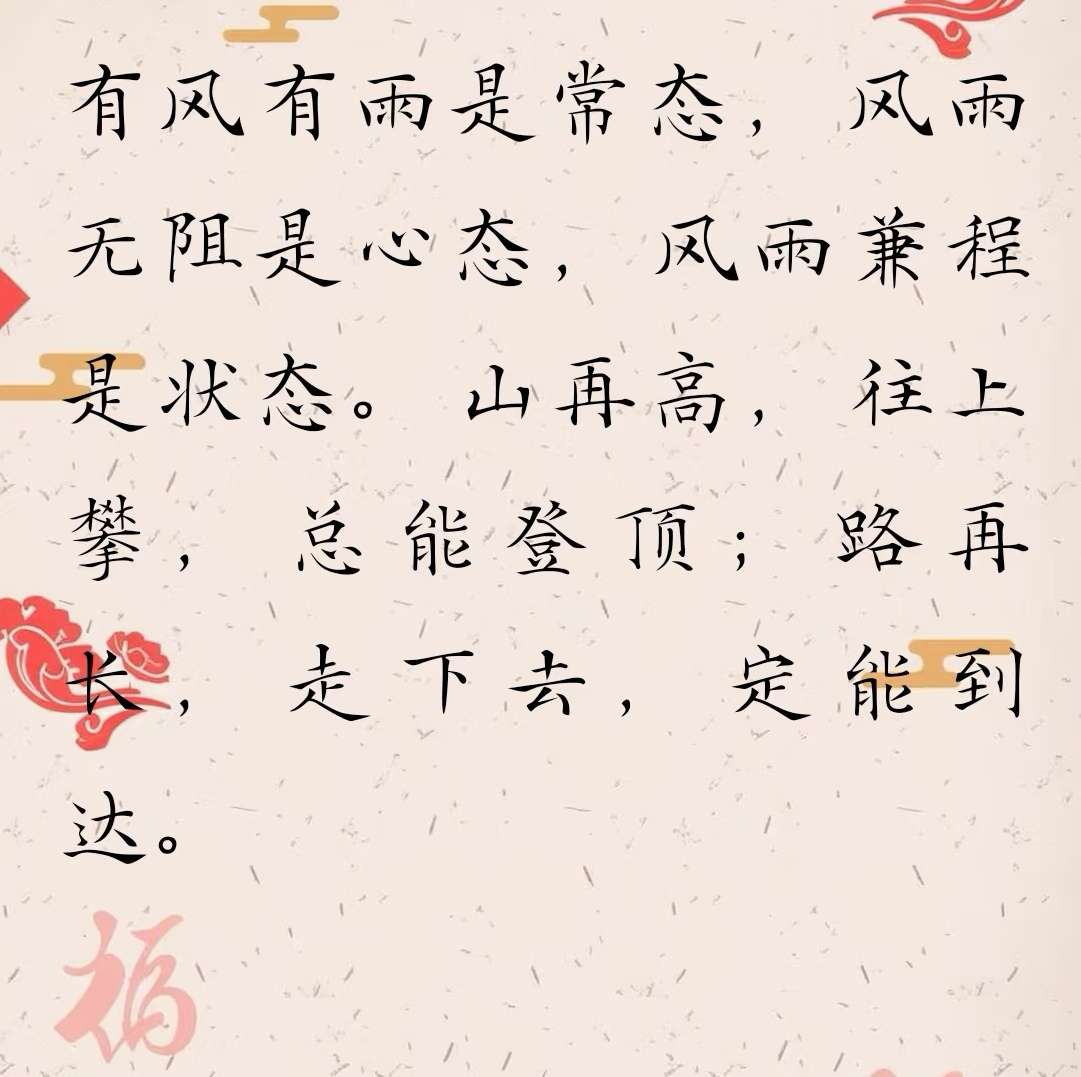 有风有雨是常态，风雨
无阻是心态，风雨兼程
是状态。山再高，往上
攀，总能登顶；路再
长，走下去，定能到
达。
福